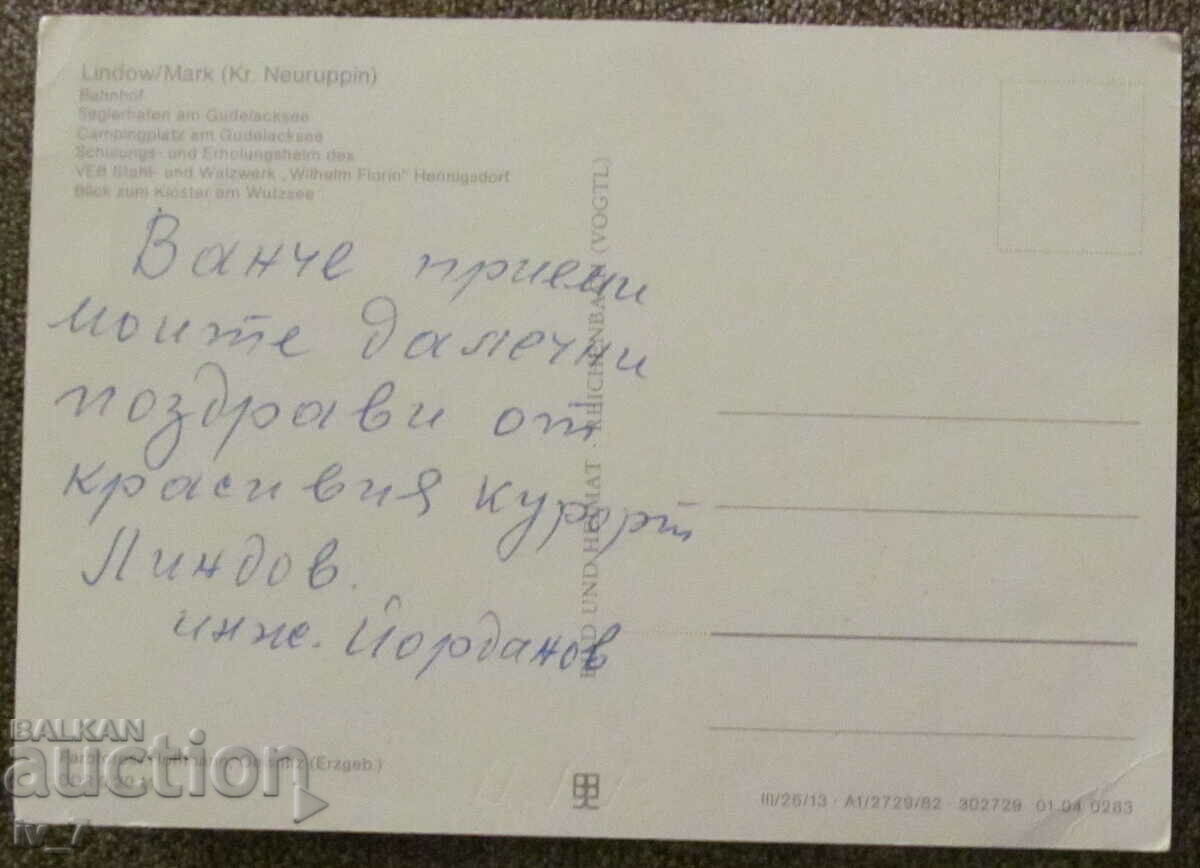 Lindow/Mark (Kr. Neuruppin)
Bahnhof
Seglerhafen am Gudelacksee
Campingplatz am Gudelacksee
Schulungs- und Erholungsheim des
VEB Stahl- und Walzwerk „Wilhelm Florin" Hennigsdorf
Blick zum Kloster am Wutzsee
Ванче приеми
моите далечни
поздрави от
красивия курорт
Линдов.
инж. Йорданов
BILD UND HEIMAT · REICHENBACH (VOGTL)
(Erzgeb.)
III/26/13 · A1/2729/82 · 302729 01 04 0283
BALKAN
auction
iv_7